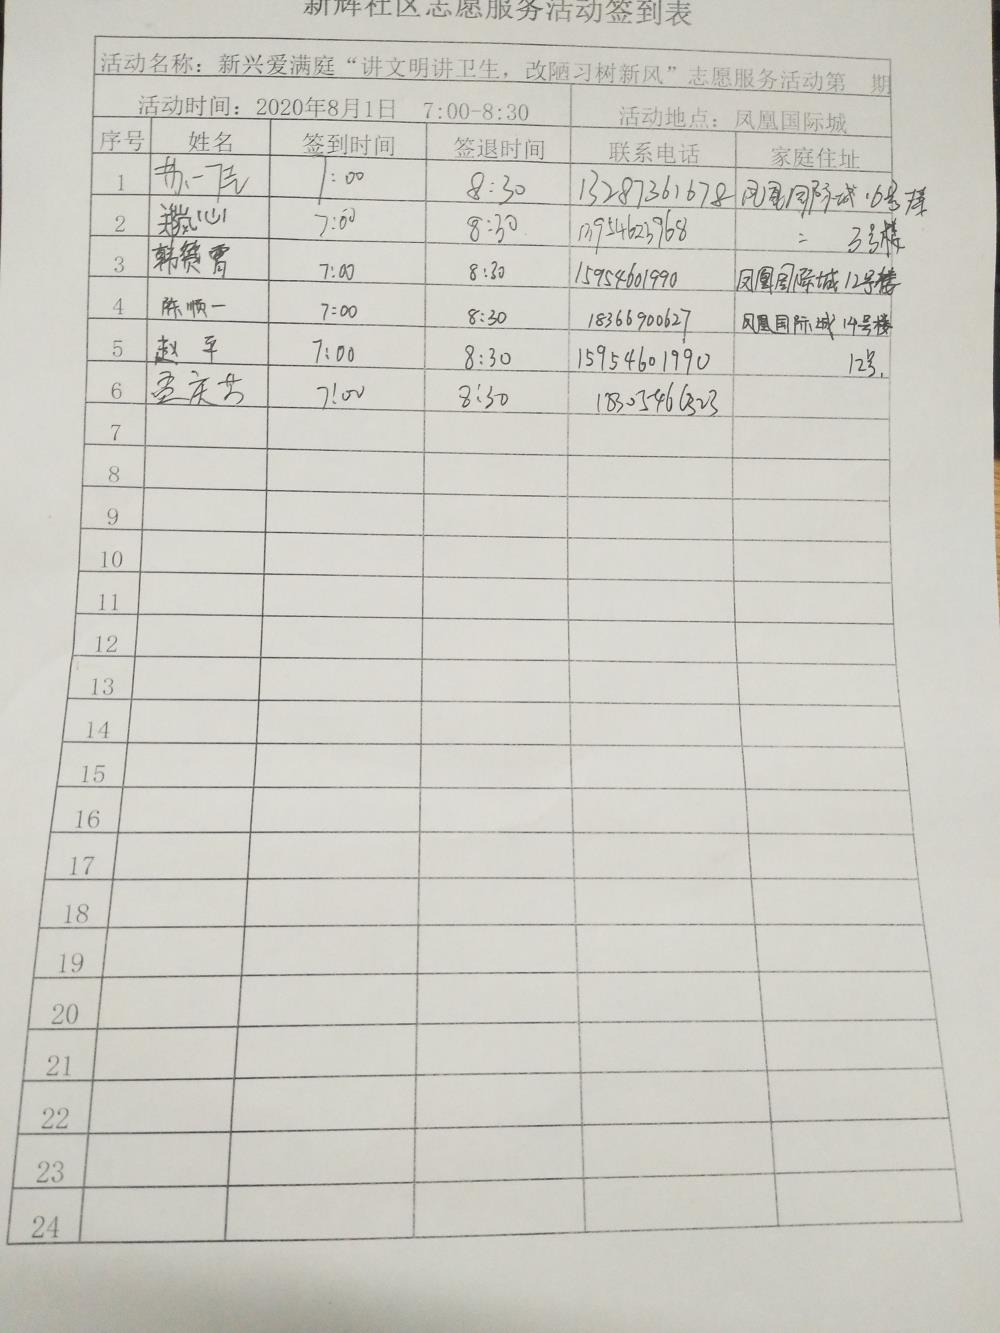 新辉社区志愿服务活动签到表
活动名称：新兴爱满庭“讲文明讲卫生，改陋习树新风”志愿服务活动第 期
活动时间：2020年8月1日 7:00-8:30 活动地点：凤凰国际城
序号 姓名 签到时间 签退时间 联系电话 家庭住址
1 苏一 7:00 8:30 13287361678 凤凰国际城16号楼
2 7:00 8:30 13954623968 = 3号楼
3 韩 霄 7:00 8:30 15954601990 凤凰国际城12号楼
4 陈顺一 7:00 8:30 18366900627 凤凰国际城14号楼
5 赵平 7:00 8:30 15954601990 12号.
6 孟庆芳 7:00 8:30 18305466323
7
8
9
10
11
12
13
14
15
16
17
18
19
20
21
22
23
24